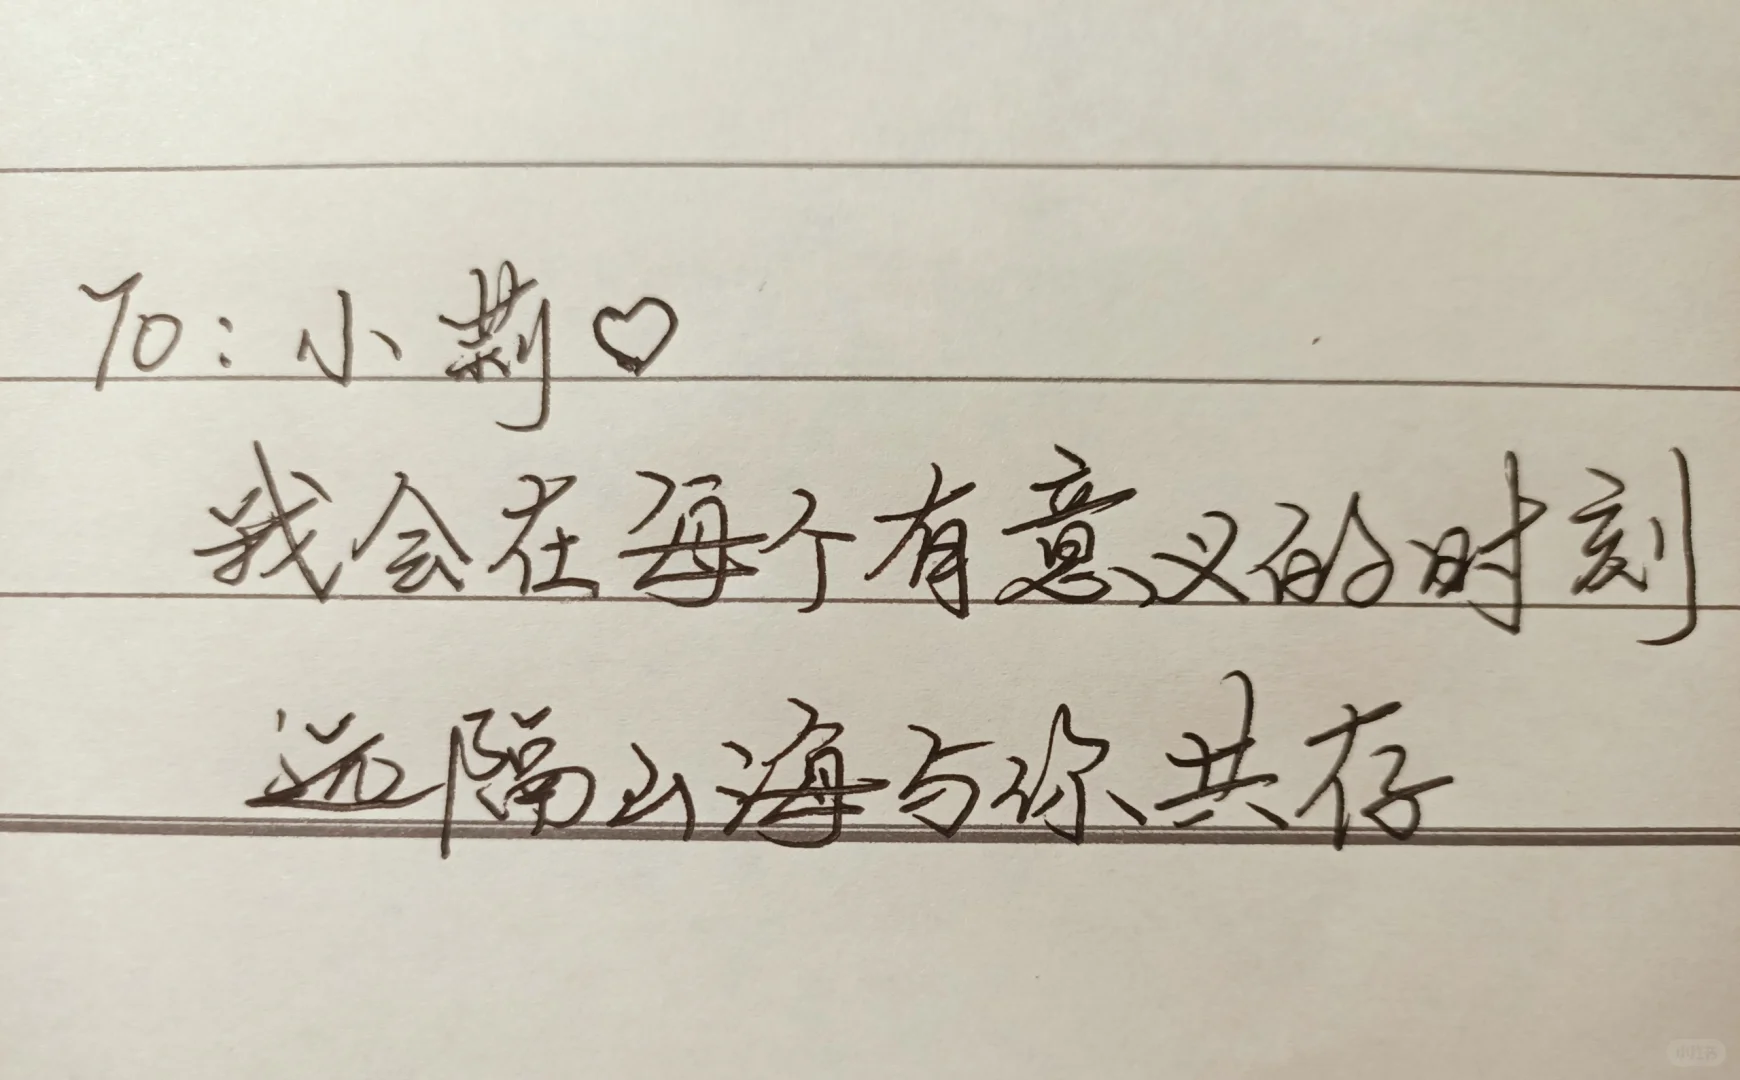 To:小莉♡
我会在每个有意义的时刻
远隔山海与你共存
小红书